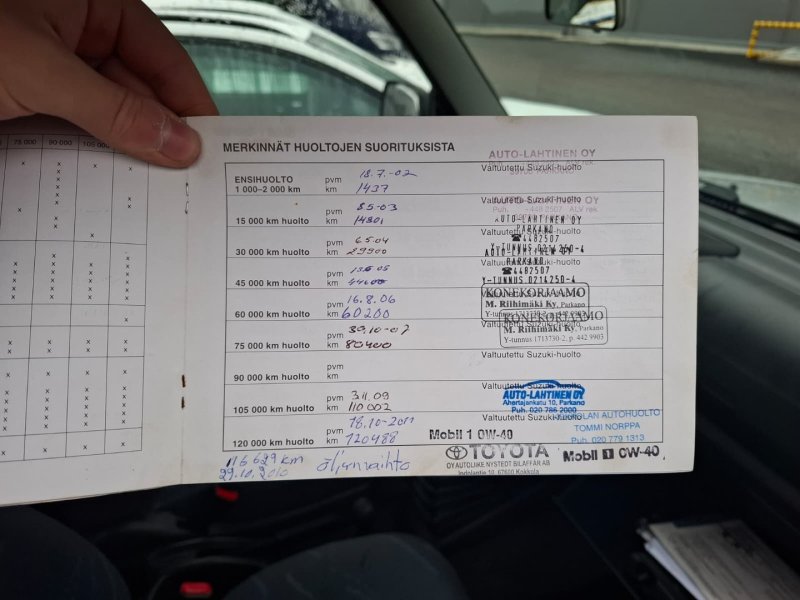 75 000 90 000 105 000
MERKINNÄT HUOLTOJEN SUORITUKSISTA
AUTO-LAHTINEN OY
ENSIHUOLTO pvm 18.7.-02 Valtuutettu Suzuki-huolto
1 000–2 000 km km 1437
pvm 8.5-03 Valtuutettu Suzuki-huolto
15 000 km huolto km
AUTO-LAHTINEN OY
PARKANO
pvm 6.5.04 ☎4482507
Valtuutettu Suzuki-huolto
30 000 km huolto km 29900
Y-TUNNUS 0214250-4
AUTO-LAHTINEN OY
PARKANO
pvm Valtuutettu Suzuki-huolto
☎4482507
45 000 km huolto km
Y-TUNNUS 0214250-4
pvm 16.8.06 KONEKORJAAMO
60 000 km huolto km 60200 M. Riihimäki Ky, Parkano
Y-tunnus 1713730-2, p. 442 9903
pvm 30.10-07 KONEKORJAAMO
75 000 km huolto km 80400 M. Riihimäki Ky, Parkano
Y-tunnus 1713730-2, p. 442 9903
pvm Valtuutettu Suzuki-huolto
90 000 km huolto km
pvm 3.11.09 Valtuutettu Suzuki-huolto
AUTO-LAHTINEN OY
105 000 km huolto km 110 002 Ahertajankatu 10, Parkano
Puh. 020 786 2000
pvm 18.10-2011 Valtuutettu Suzuki-huolto
AUTOHUOLTO
TOMMI NORPPA
120 000 km huolto km 120488 Mobil 1 0W-40
Puh. 020 779 1313
116 629 km öljynvaihto TOYOTA Mobil 1 0W-40
29.10.2010 OY AUTOLIIKE NYSTEDT BILAFFÄR AB
Indolantie 10, 67600 Kokkola